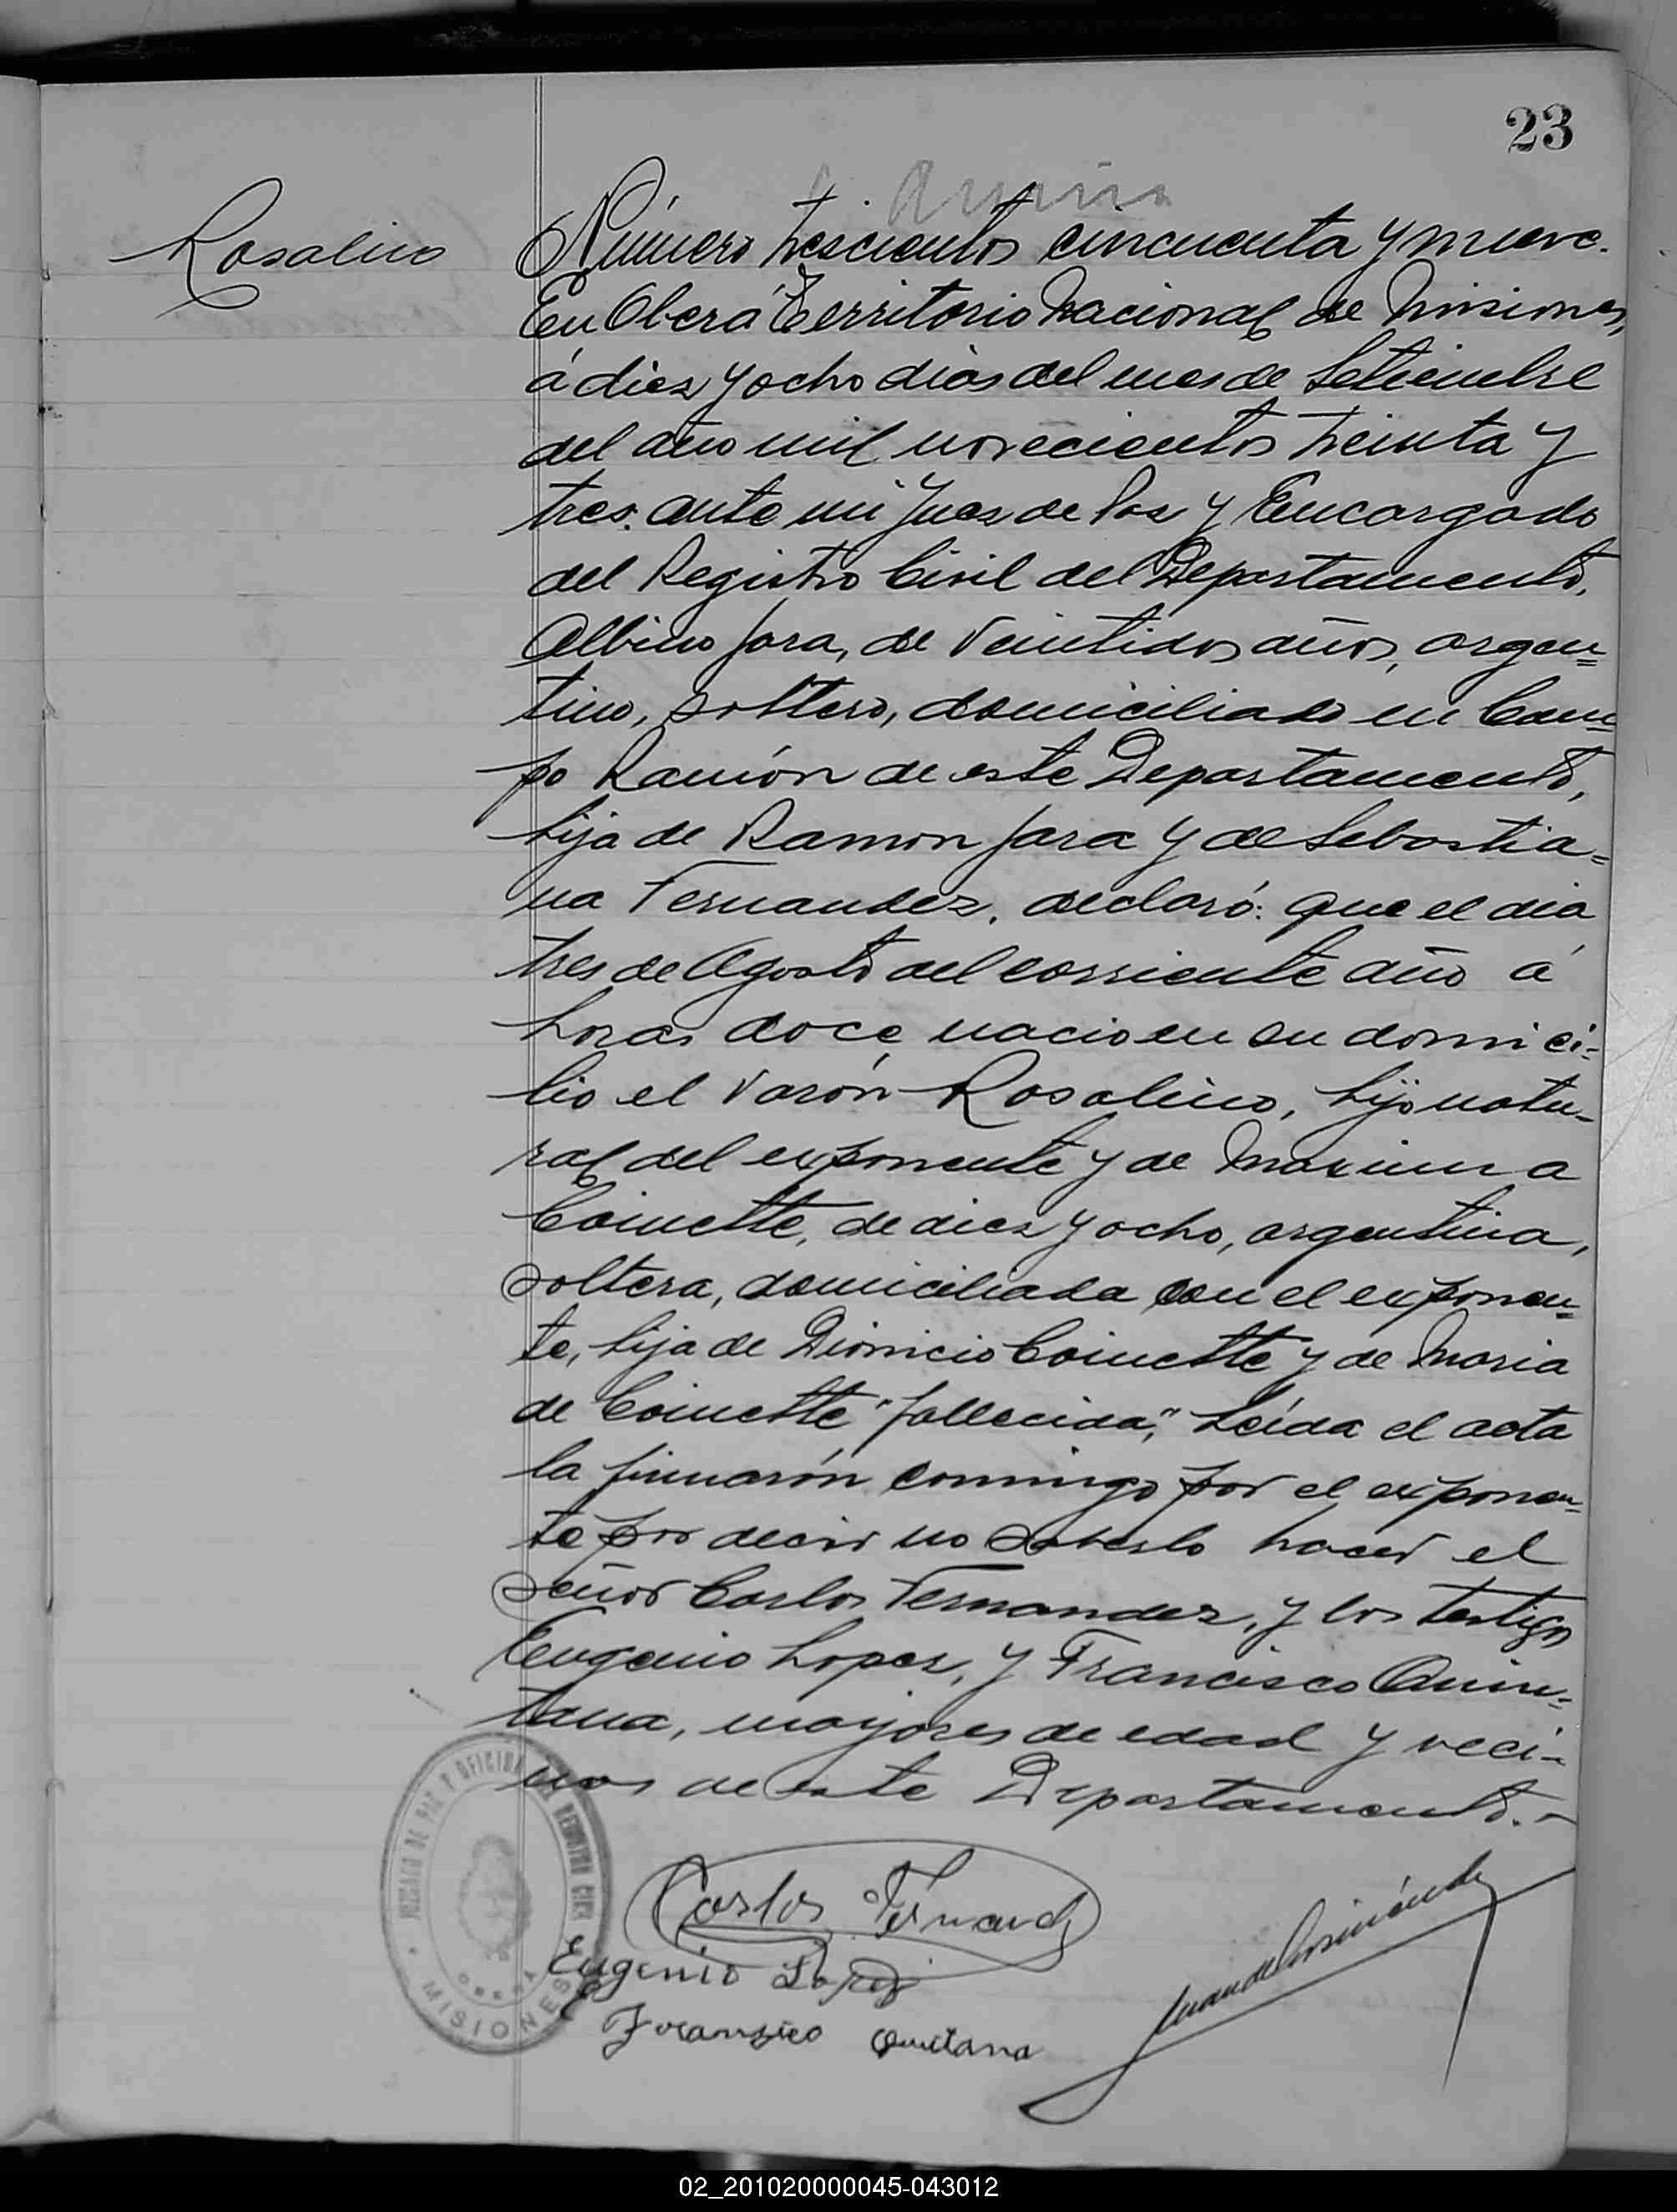 23
Rosalino
Número trescientos cincuenta y nueve.
En Oberá Territorio Nacional de Misiones,
á diez y ocho dias del mes de Setiembre
del año mil novecientos treinta y
tres: ante mi Juez de Paz y Encargado
del Registro Civil del Departamento,
Albino Jara, de veintidos años, argen=
tino, soltero, domiciliado en Cam=
po Ramón de este Departamento,
hijo de Ramon Jara y de Sebastia=
na Fernandez, declaró: que el dia
tres de Agosto del corriente año á
horas doce, nacio en su domici=
lio el varón Rosalino, hijo natu=
ral del exponente y de Maxima
Coinette, de diez y ocho, argentina,
soltera, domiciliada con el exponen=
te, hija de Dionicio Coinette y de Maria
de Coinette "fallecida", Leída el acta
la firmarón conmigo por el exponen=
te por decir no saberlo hacer el
señor Carlos Fernandez, y los testigos
Eugenio Lopez, y Francisco Quin=
tana, mayores de edad y veci=
nos de este Departamento.-
JUZGADO DE PAZ Y OFICINA DEL REGISTRO CIVIL
OBERÁ
MISIONES
Carlos Fernandz
Eugenio Lopez
Fransico Quitana
02_201020000045-043012